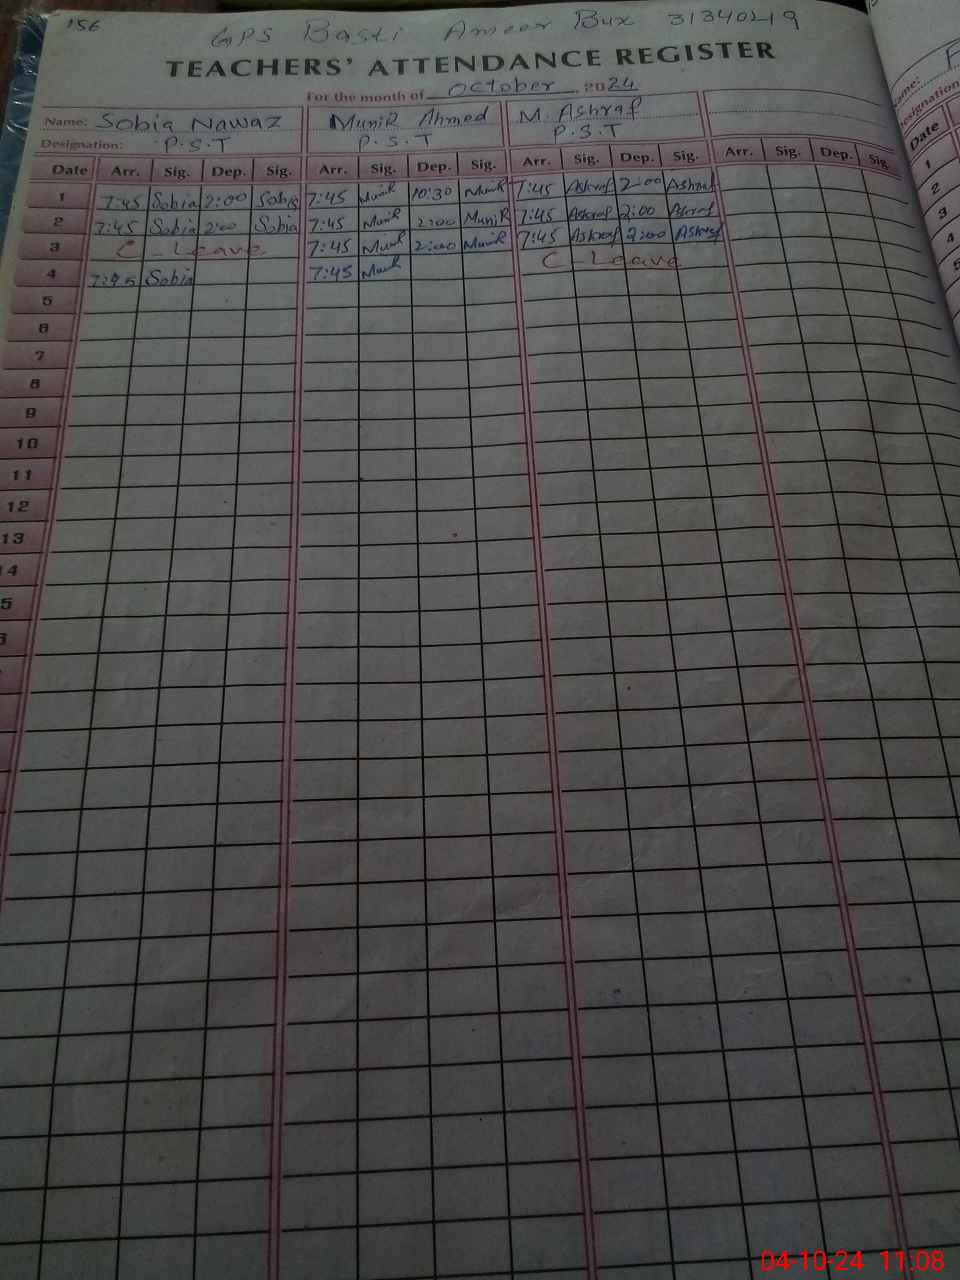 156
GPS Basti Ameer Bux 31340219
TEACHERS' ATTENDANCE REGISTER
For the month of October 2024
Name: Sobia Nawaz Munir Ahmed M. Ashraf
Designation: P.S.T P.S.T P.S.T
Date Arr. Sig. Dep. Sig. Arr. Sig. Dep. Sig. Arr. Sig. Dep. Sig. Arr. Sig. Dep. Sig.
1 7:45 Sobia 2:00 Sobia 7:45 Munir 10:30 Munir 7:45 Ashraf 2:00 Ashraf
2 7:45 Sobia 2:00 Sobia 7:45 Munir 2:00 Munir 7:45 Ashraf 2:00 Ashraf
3 C - Leave 7:45 Munir 2:00 Munir 7:45 Ashraf 2:00 Ashraf
4 7:45 Sobia 7:45 Munir C - Leave
5
6
7
8
9
10
11
12
13
14
5
Name:
Designation
Date
1
2
3
4
5
04-10-24 11:08